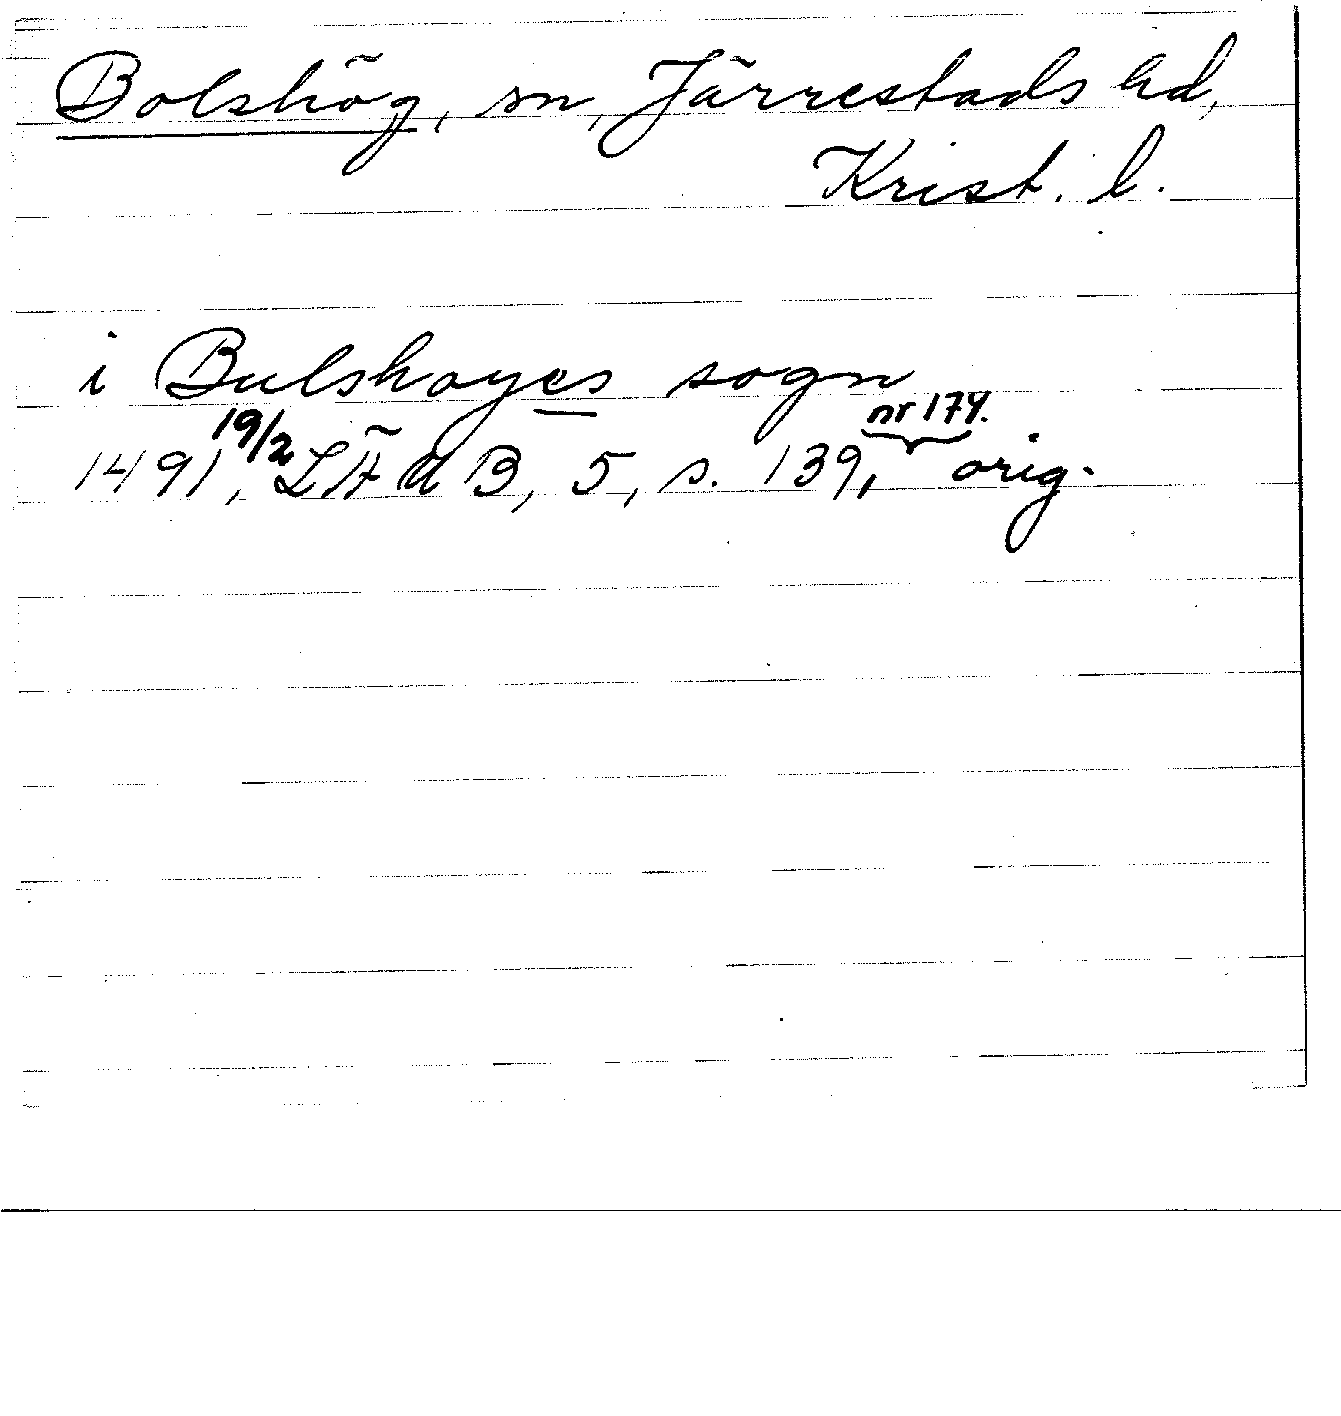 Bolshög, sn, Järrestads hd,
Krist. l.
i Bulshoyes sogn
1491, 19/2 LÄUB, 5, s. 139, nr 174. orig.